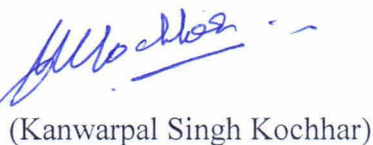 (Kanwarpal Singh Kochhar)